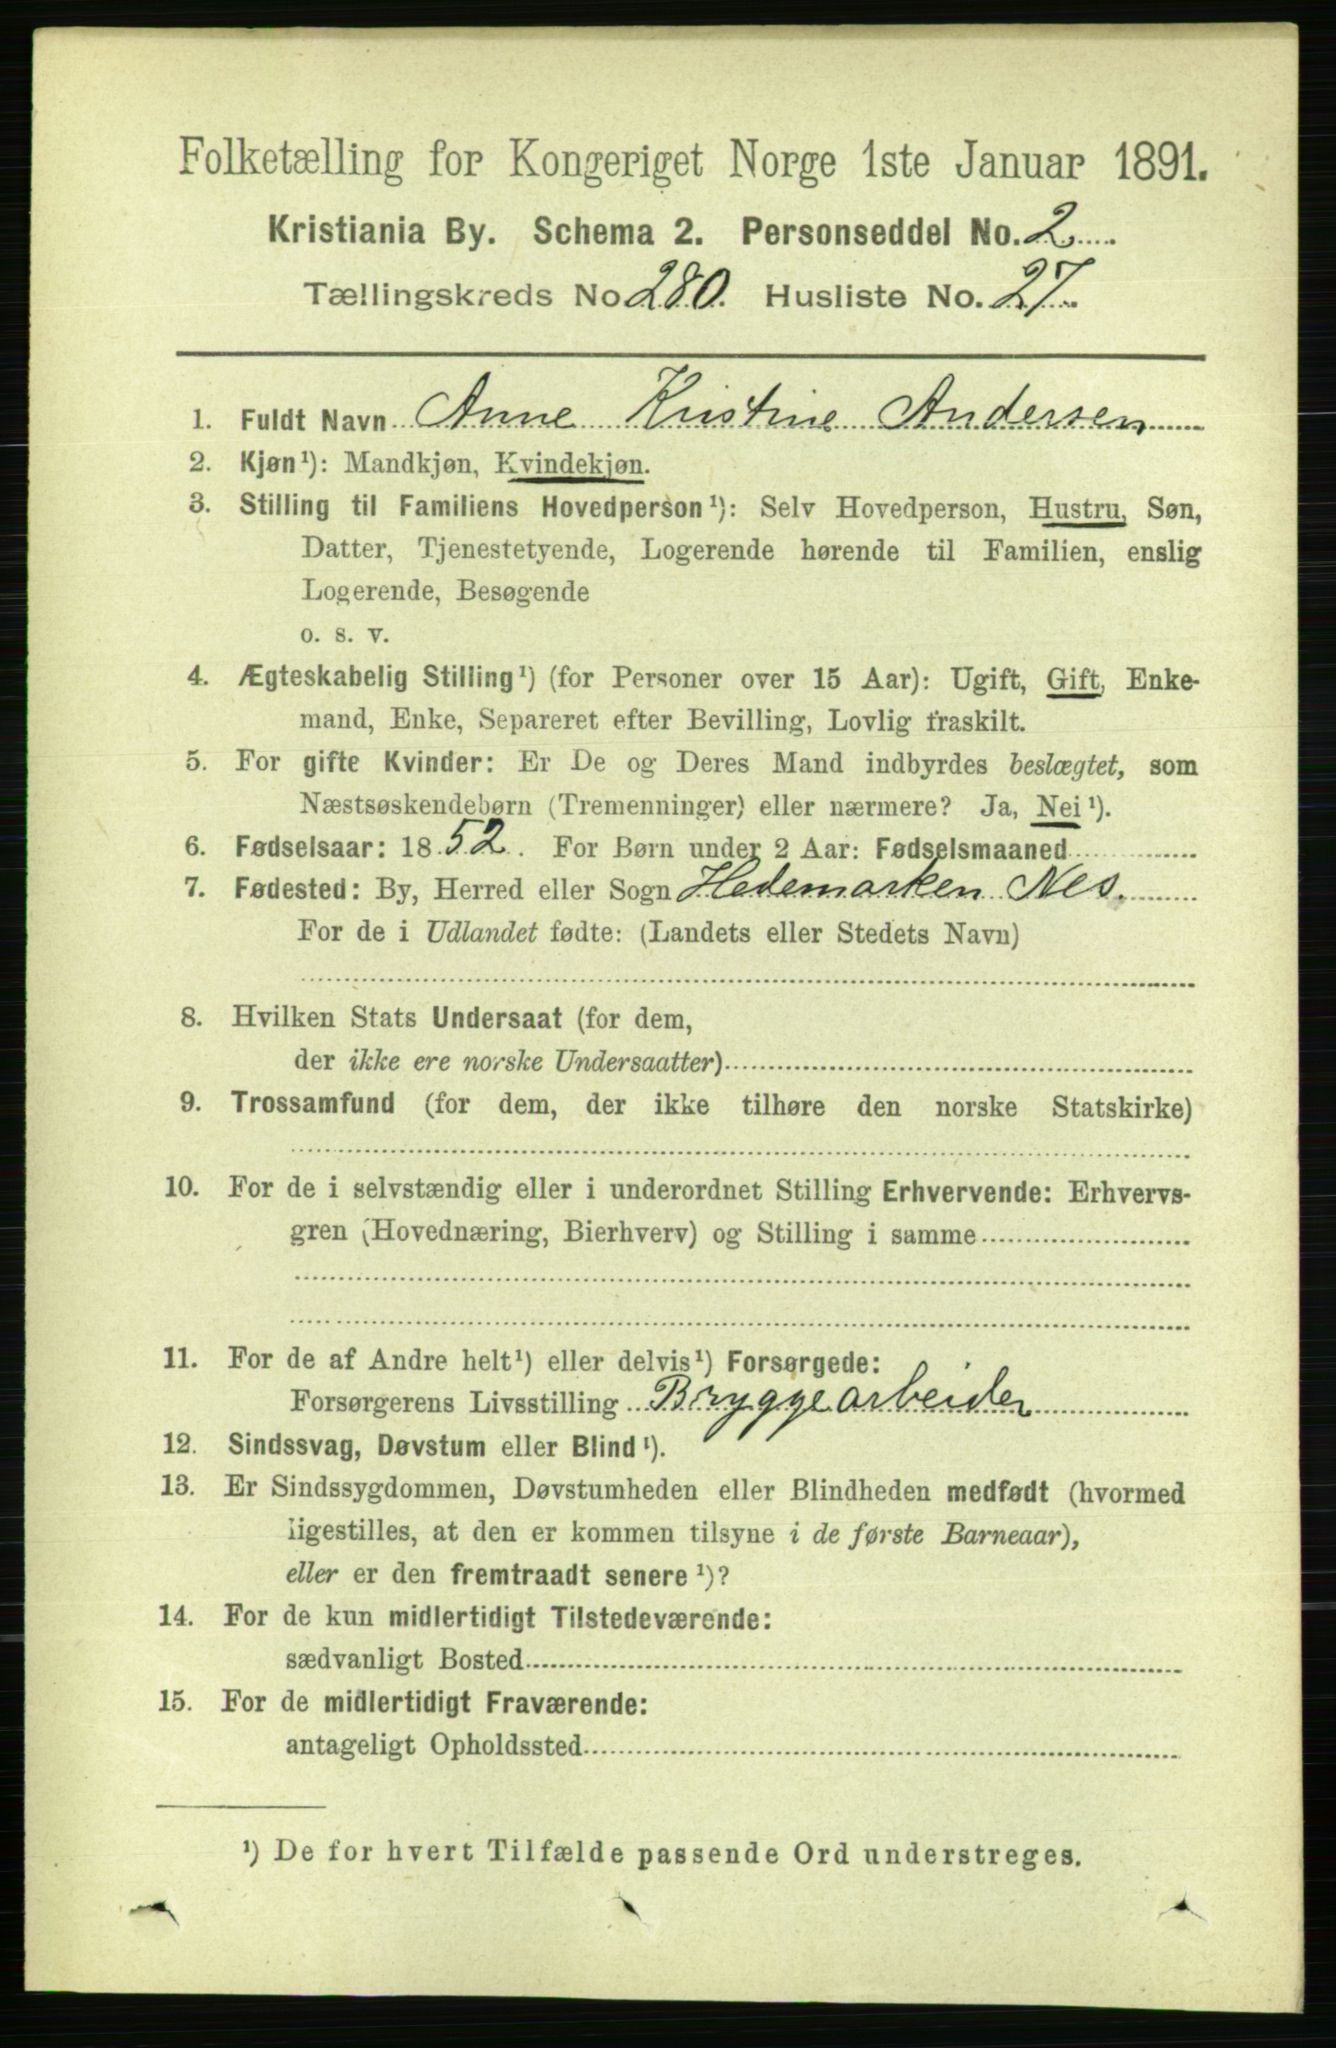 Folketælling for Kongeriget Norge 1ste Januar 1891.
Kristiania By. Schema 2. Personseddel No. 2
Tællingskreds No 280. Husliste No. 27.
1. Fuldt Navn Anne Kristine Andersen
2. Kjøn¹): Mandkjøn, Kvindekjøn.
3. Stilling til Familiens Hovedperson¹): Selv Hovedperson, Hustru, Søn,
Datter, Tjenestetyende, Logerende hørende til Familien, enslig
Logerende, Besøgende
o. s. v.
4. Ægteskabelig Stilling¹) (for Personer over 15 Aar): Ugift, Gift, Enke-
mand, Enke, Separeret efter Bevilling, Lovlig fraskilt.
5. For gifte Kvinder: Er De og Deres Mand indbyrdes beslægtet, som
Næstsøskendebørn (Tremenninger) eller nærmere? Ja, Nei¹).
6. Fødselsaar: 1852. For Børn under 2 Aar: Fødselsmaaned
7. Fødested: By, Herred eller Sogn Hedemarken Nes.
For de i Udlandet fødte: (Landets eller Stedets Navn)
8. Hvilken Stats Undersaat (for dem,
der ikke ere norske Undersaatter)
9. Trossamfund (for dem, der ikke tilhøre den norske Statskirke)
10. For de i selvstændig eller i underordnet Stilling Erhvervende: Erhvervs-
gren (Hovednæring, Bierhverv) og Stilling i samme
11. For de af Andre helt¹) eller delvis¹) Forsørgede:
Forsørgerens Livsstilling Bryggearbeider
12. Sindssvag, Døvstum eller Blind¹).
13. Er Sindssygdommen, Døvstumheden eller Blindheden medfødt (hvormed
ligestilles, at den er kommen tilsyne i de første Barneaar),
eller er den fremtraadt senere¹)?
14. For de kun midlertidigt Tilstedeværende:
sædvanligt Bosted
15. For de midlertidigt Fraværende:
antageligt Opholdssted
¹) De for hvert Tilfælde passende Ord understreges.